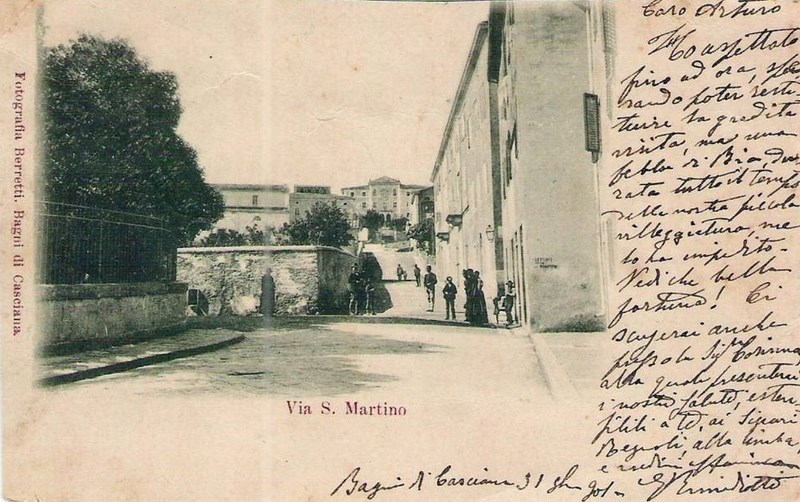 Fotografia Berretti. Bagni di Casciana
Via S. Martino
Caro Arturo
Ho aspettato
fino ad ora, spe
rando poter resti
tuire la gradita
visita, ma una
febbre di Bia, du
rata tutto il tempo
della nostra piccola
villeggiatura, me
lo ha impedito.
Vedi che bella
fortuna! Ci
scuserai anche
presso la Sig.ra
alla quale presenterai
i nostri saluti, esten
sibili a te, ai Signori
alla bimba,
e
Bagni di Casciana 31